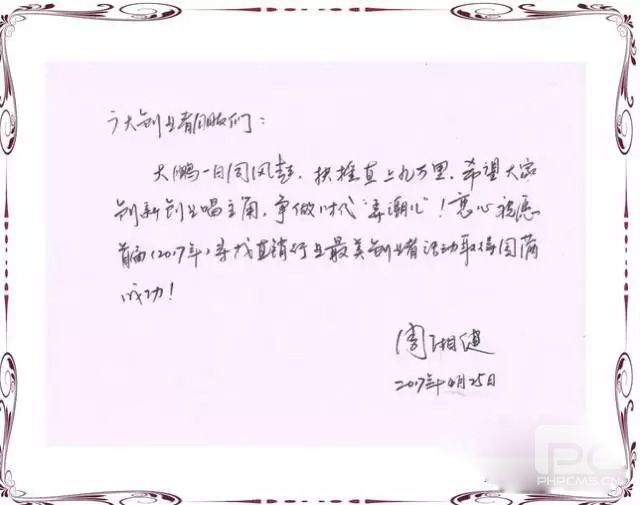 广大创业者朋友们：
大鹏一日同风起，扶摇直上九万里。希望大家
创新创业唱主角，争做时代“弄潮儿”！衷心祝愿
首届(2017年)寻找直销行业最美创业者活动取得圆满
成功！
周湘健
2017年4月25日
PC
PHPCMS.CN